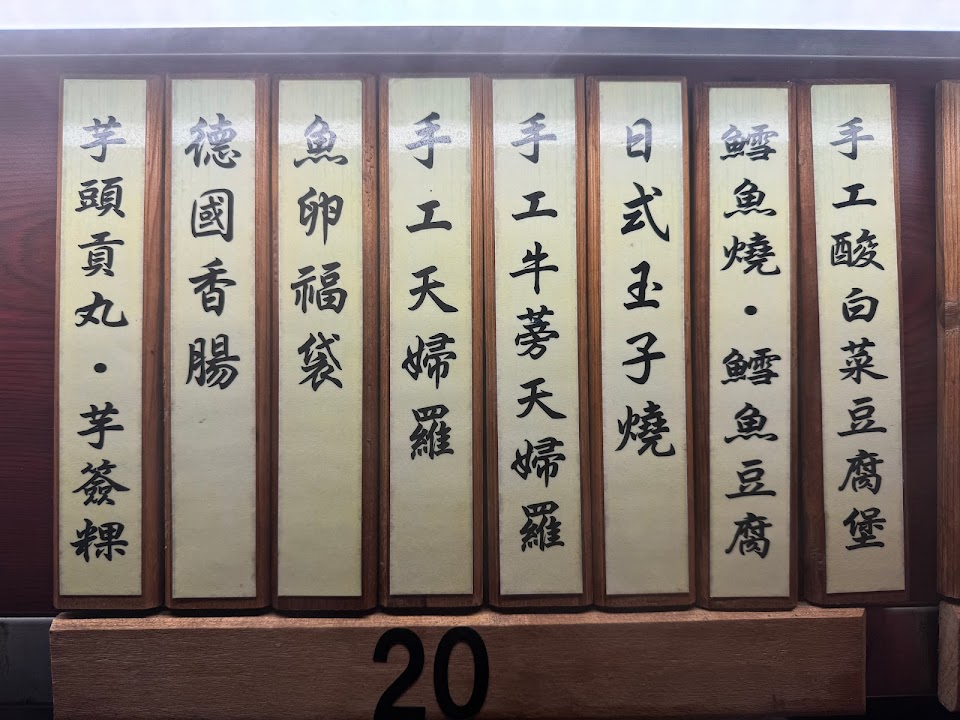 手工酸白菜豆腐堡
鱈魚燒・鱈魚豆腐
日式玉子燒
手工牛蒡天婦羅
手工天婦羅
魚卵福袋
德國香腸
芋頭貢丸・芋簽粿
20